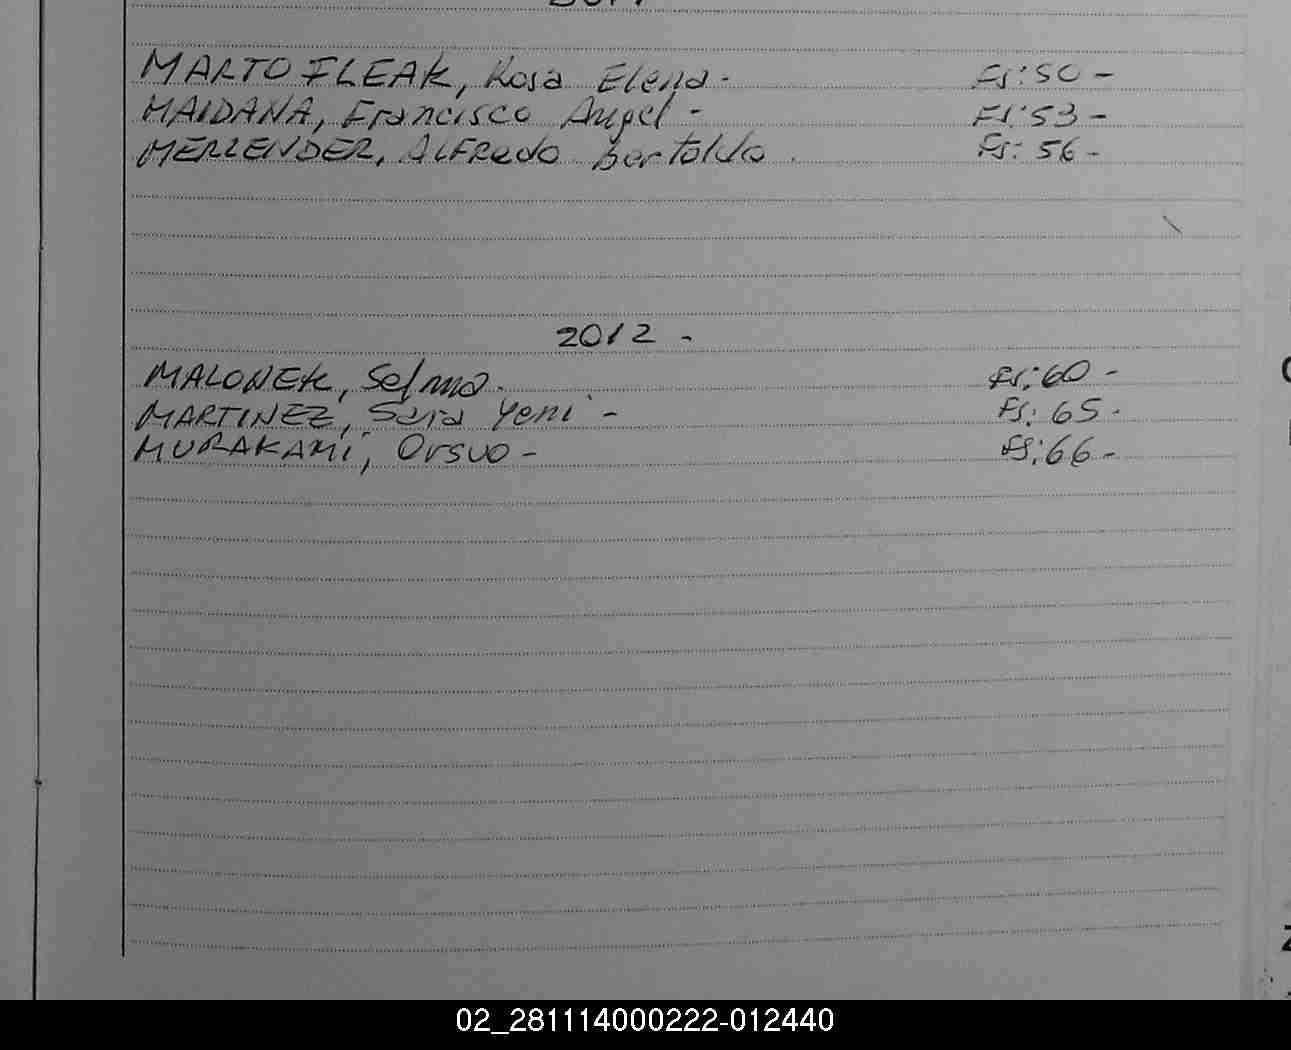 MARTOFLEAK, Rosa Elena - Fs: 50 -
MAIDANA, Francisco Angel - Fs: 53 -
MERZENDER, ALFRedo Bertoldo. Fs: 56 -
2012 -
MALONEK, Selma. Fs: 60 -
MARTINEZ, Sara Yeni - Fs: 65 -
MURAKAMI, Orsuo - Fs: 66 -
02_281114000222-012440